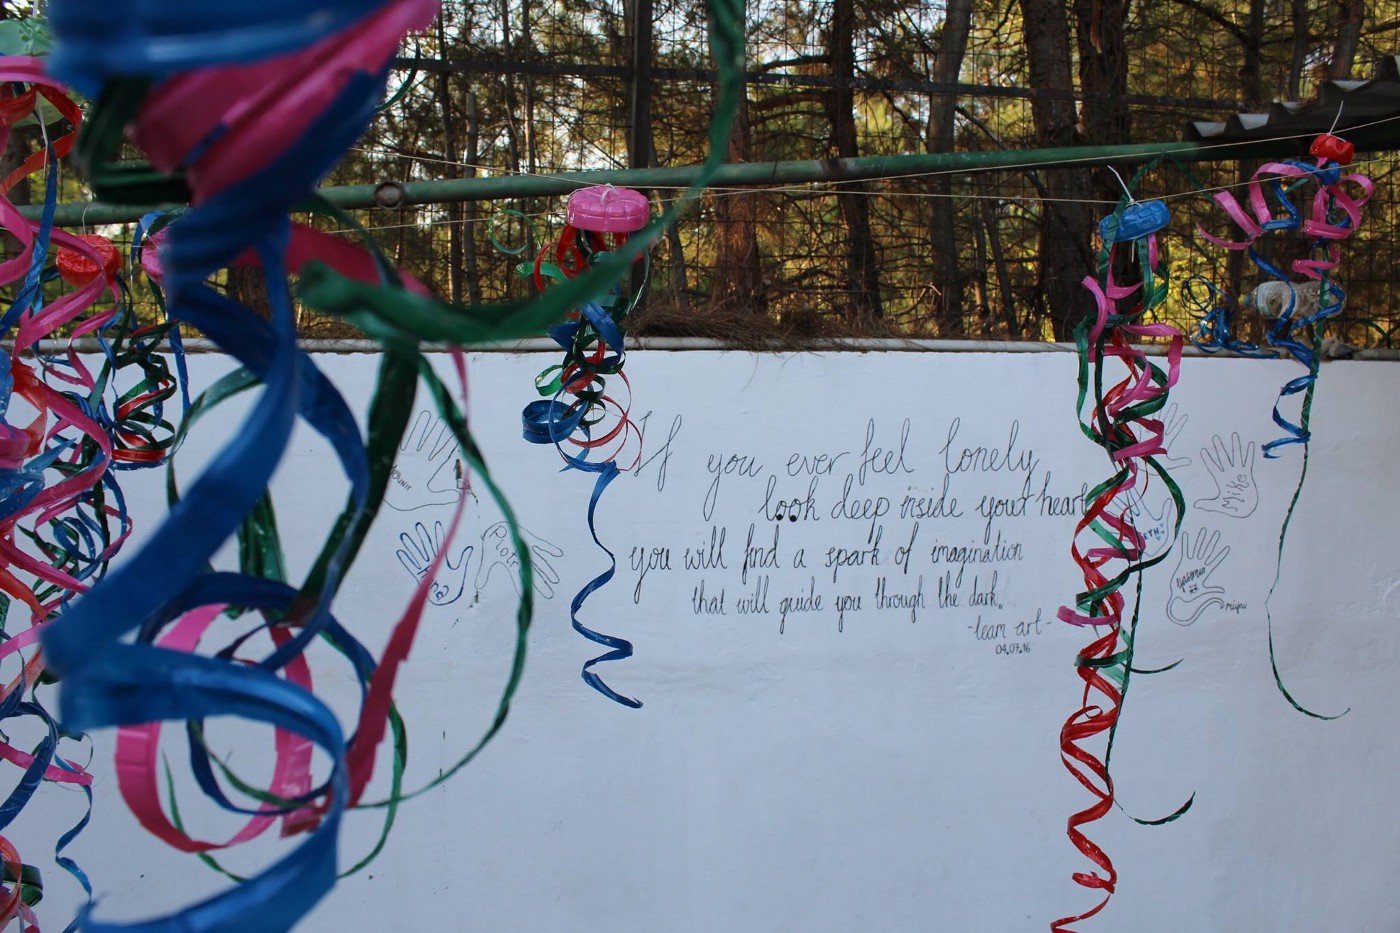 If you ever feel lonely
look deep inside your heart
you will find a spark of imagination
that will guide you through the dark.
-team art-
04.07.16
Piotr
Miko